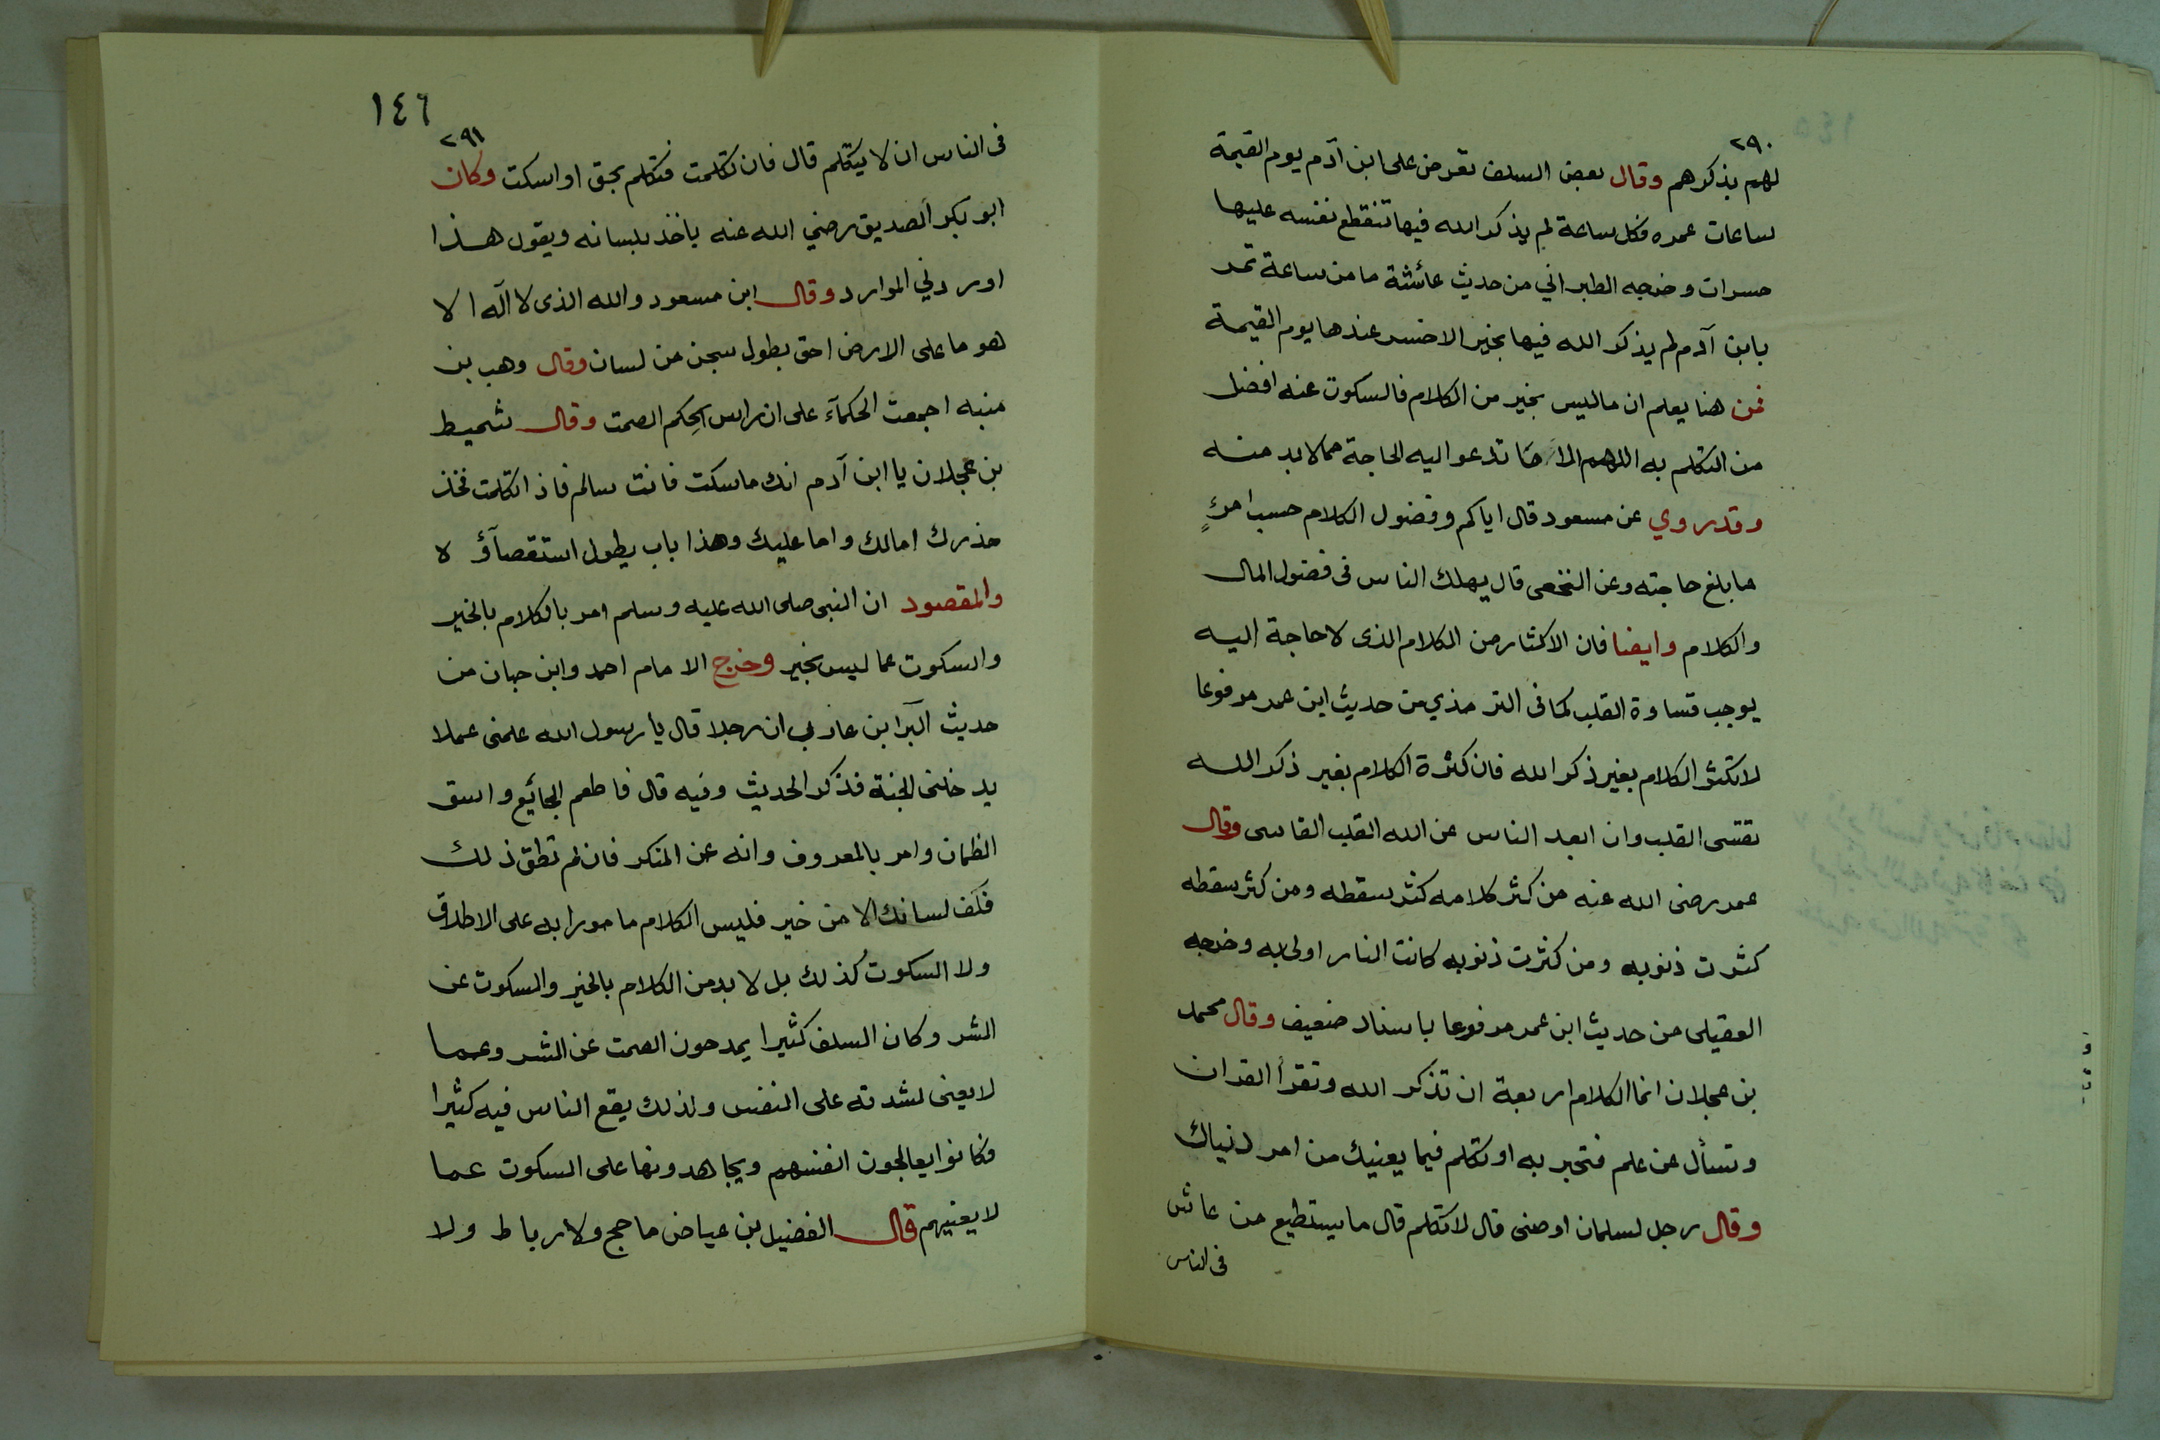 ٢٩٠
لهم بذكرهم وقال بعض السلف تعرض على ابن آدم يوم القيمة
ساعات عمره فكل ساعة لم يذكر الله فيها تنقطع نفسه عليها
حسرات وخرجه الطبراني من حديث عائشة ما من ساعة تمر
بابن آدم لم يذكر الله فيها بخير الا خسر عندها يوم القيمة
فمن هنا يعلم ان ما ليس بخير من الكلام فالسكوت عنه افضل
من التكلم به اللهم الا ما تدعو اليه الحاجة مما لا بد منه
وقد روي عن مسعود قال اياكم وفضول الكلام حسب امرءٍ
ما بلغ حاجته وعن النخعى قال يهلك الناس فى فضول المال
والكلام وايضا فان الاكثار من الكلام الذى لا حاجة اليه
يوجب قساوة القلب كما فى الترمذي من حديث ابن عمر مرفوعا
لا تكثر الكلام بغير ذكر الله فان كثرة الكلام بغير ذكر الله
تقسى القلب وان ابعد الناس عن الله القلب القاسى وقال
عمر رضى الله عنه من كثر كلامه كثر سقطه ومن كثر سقطه
كثرت ذنوبه ومن كثرت ذنوبه كانت النار اولى به وخرجه
العقيلى من حديث ابن عمر مرفوعا باسناد ضعيف وقال محمد
بن عجلان انما الكلام اربعة ان تذكر الله وتقرأ القران
وتسأل عن علم فتخبر به او تتكلم فيما يعنيك من امر دنياك
وقال رجل لسلمان اوصنى قال لا تتكلم قال ما يستطيع من عاش
فى الناس
١٤٦
٢٩١
فى الناس ان لا يتكلم قال فان تكلمت فتكلم بحق او اسكت وكان
ابو بكر الصديق رضي الله عنه ياخذ بلسانه ويقول هذا
اوردني الموارد وقال ابن مسعود والله الذى لا اله الا
هو ما على الارض احق بطول سجن من لسان وقال وهب بن
منبه اجمعت الحكمآء على ان راس الحِكم الصمت وقال شميط
بن عجلان يا ابن آدم انك ما سكت فانت سالم فاذا تكلمت فخذ
حذرك امالك واما عليك وهذا باب يطول استقصآؤه
والمقصود ان النبى صلى الله عليه وسلم امر بالكلام بالخير
والسكوت عما ليس بخير وخرج الامام احمد وابن حبان من
حديث البرآ ابن عازب ان رجلا قال يا رسول الله علمنى عملا
يدخلنى الجنة فذكر الحديث وفيه قال فاطعم الجائع واسق
الظمان وامر بالمعروف وانه عن المنكر فان لم تطق ذلك
فكف لسانك الا من خير فليس الكلام مامورا به على الاطلاق
ولا السكوت كذلك بل لا بد من الكلام بالخير والسكوت عن
الشر وكان السلف كثيرا يمدحون الصمت عن الشر وعما
لا يعنى لشدته على النفس ولذلك يقع الناس فيه كثيرا
فكانوا يعالجون انفسهم ويجاهدونها على السكوت عما
لا يعنيهم قال الفضيل بن عياض ما حج ولا رباط ولا